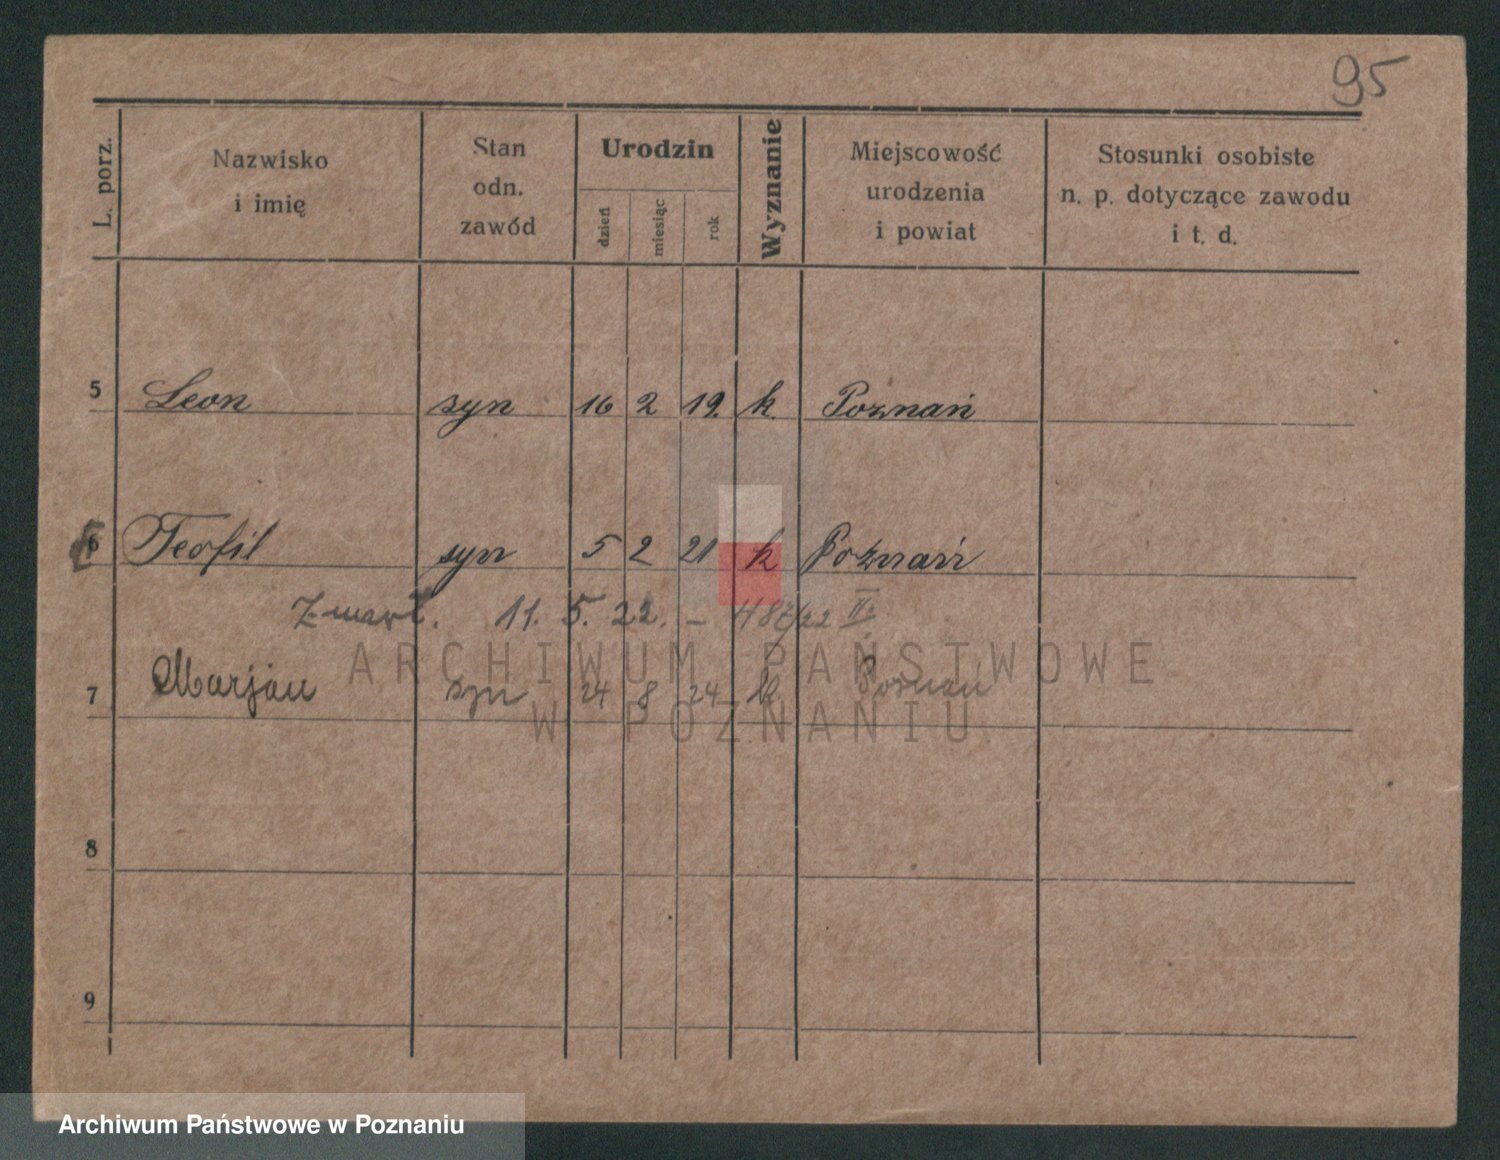 95
L. porz. Nazwisko i imię Stan odn. zawód Urodzin dzień miesiąc rok Wyznanie Miejscowość urodzenia i powiat Stosunki osobiste n. p. dotyczące zawodu i t. d.
5 Leon syn 16 2 19. k. Poznań
6 Teofil syn 5 2 21 k Poznań
Zmarł. 11. 5. 22. –
ARCHIWUM PAŃSTWOWE
7 Marjan syn 24 8 24 k Poznań
W POZNANIU
8
9
Archiwum Państwowe w Poznaniu